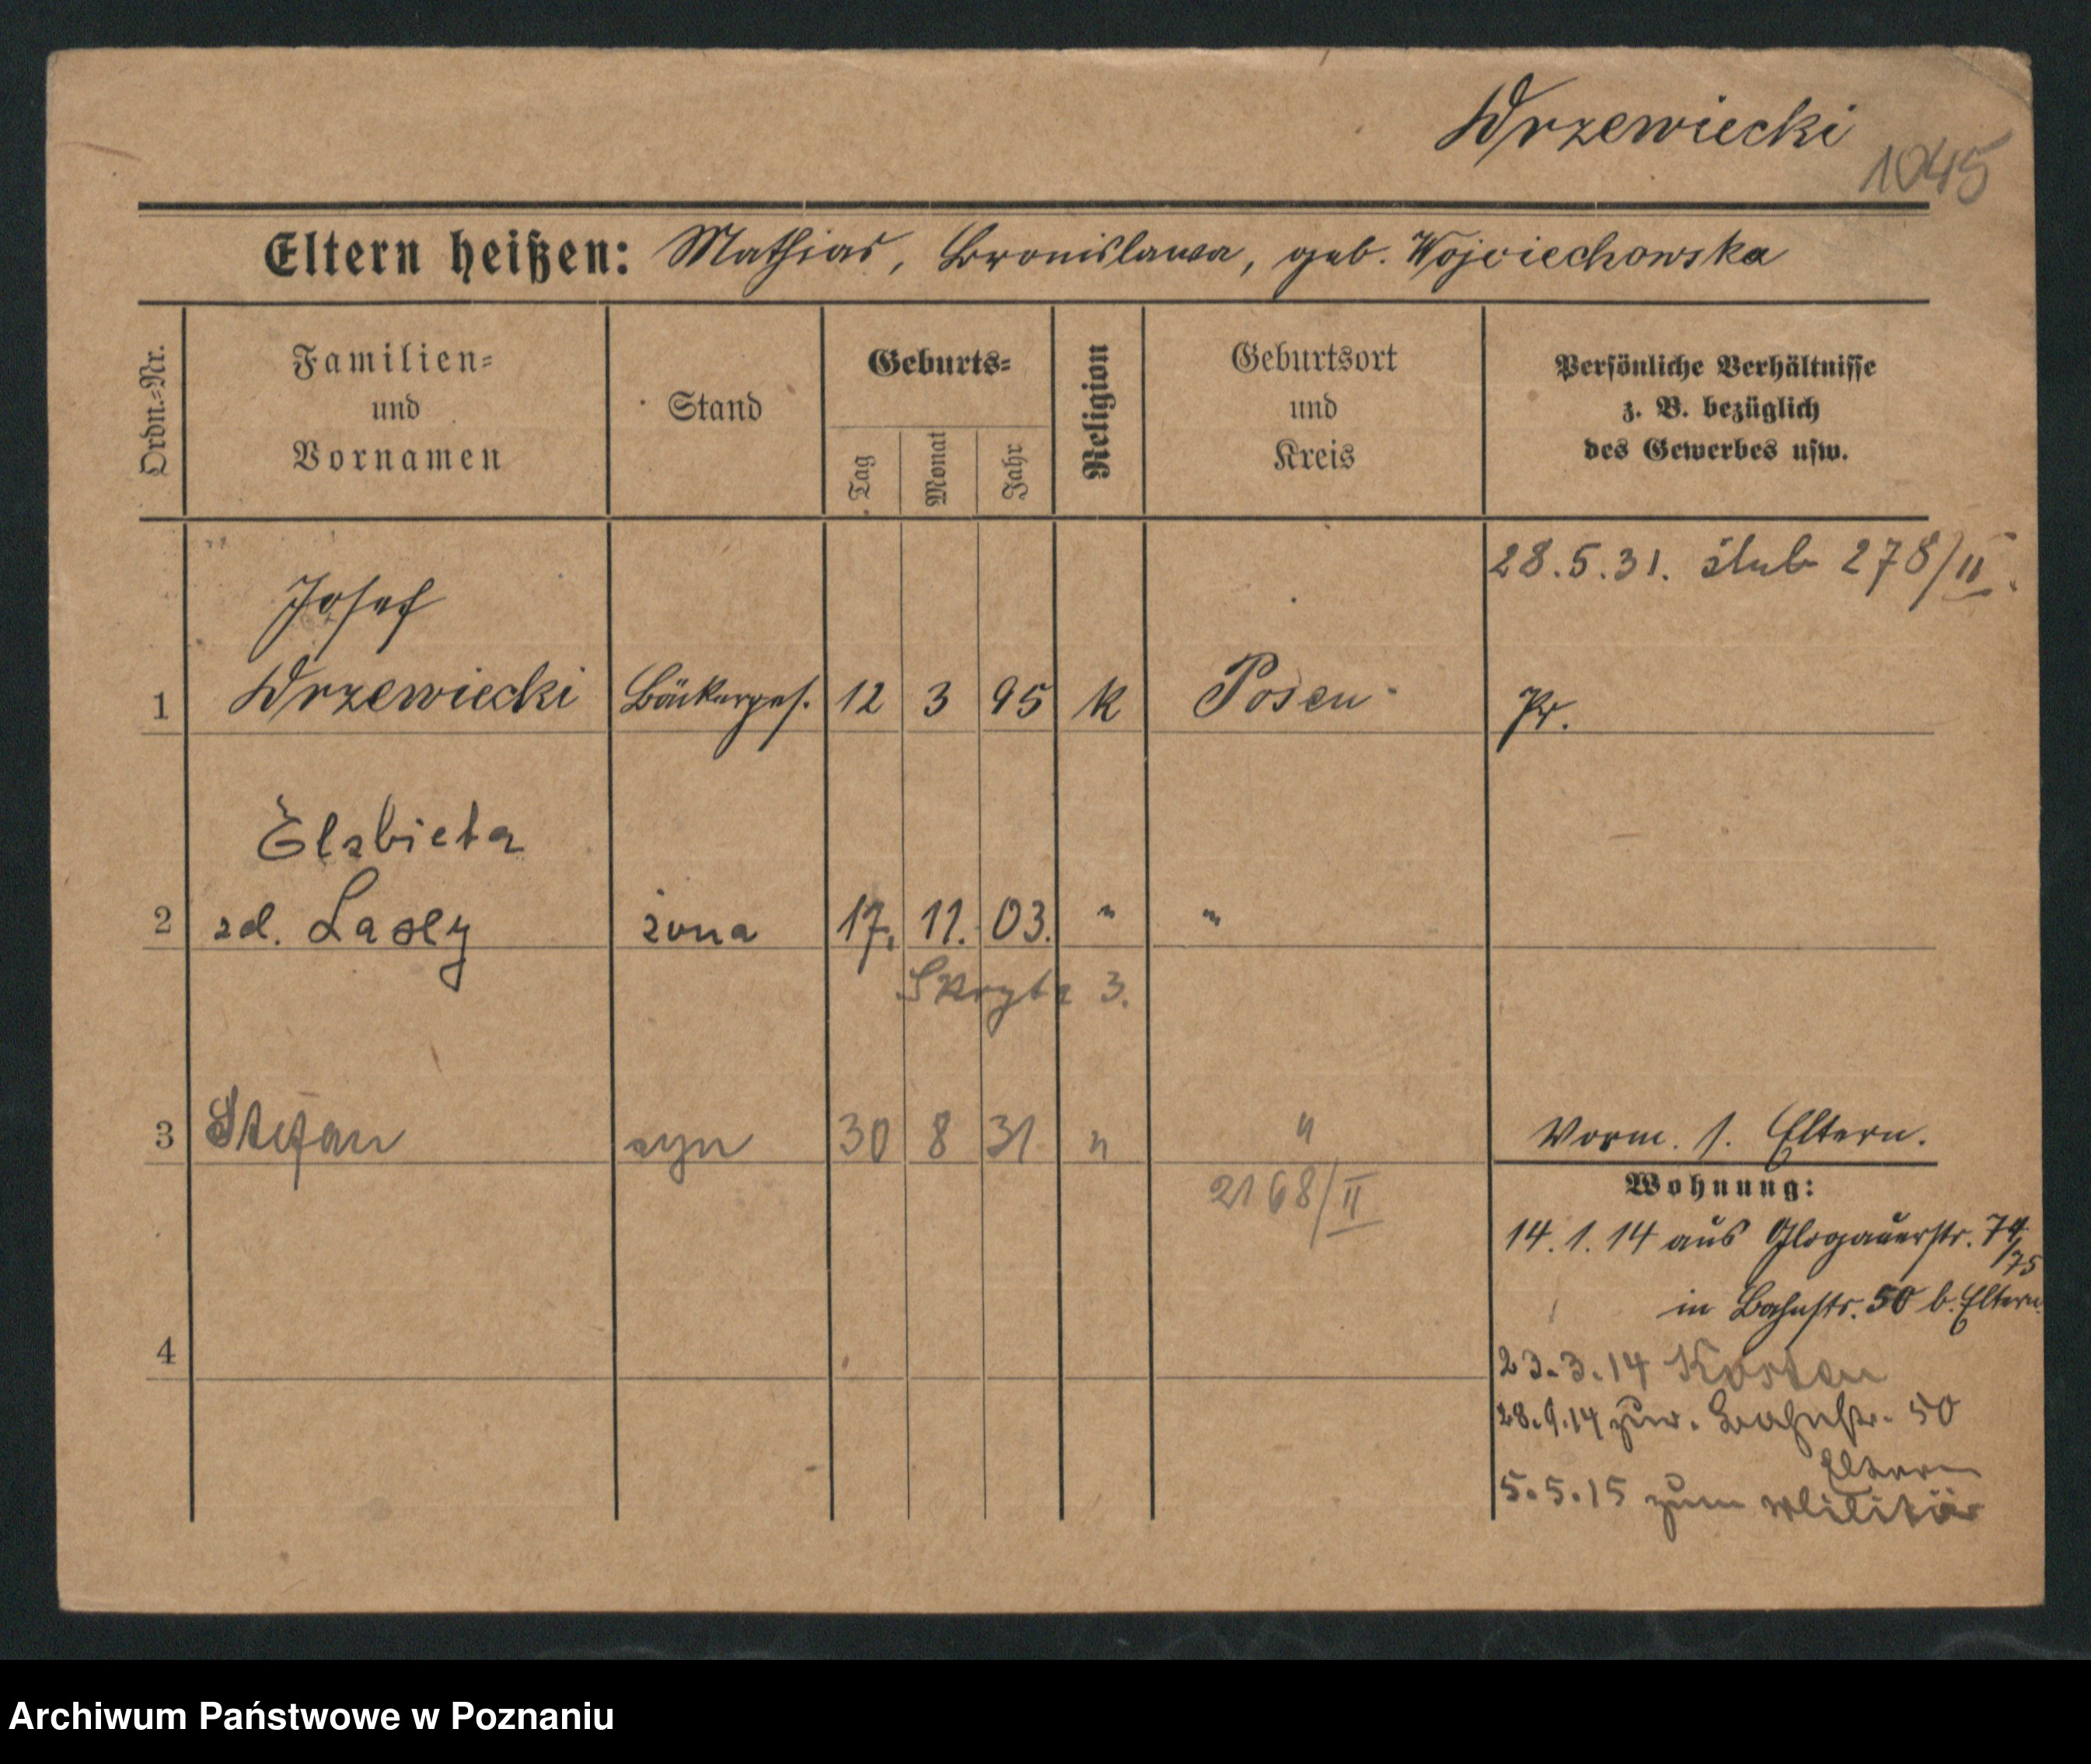 Drzewiecki
1045
Eltern heißen: Mathias, Bronislawa, geb. Wojciechowska
Ordn.-Nr.
Familien-
und
Vornamen
Stand
Geburts-
Tag
Monat
Jahr
Religion
Geburtsort
und
Kreis
Persönliche Verhältnisse
z. B. bezüglich
des Gewerbes usw.
28.5.31. ślub 278/II.
Josef
1 Drzewiecki Bäckerges. 12 3 95 k Posen Pr.
Elzbieta
2 zd. żona 17. 11. 03. " "
3.
3 Stefan syn 30 8 31 " " Vorm. s. Eltern.
2168/II
Wohnung:
14.1.14 aus Glogauerstr. 74/75
in Bahnstr. 50 b. Eltern.
4
23.3.14 Kosten
28.9.14 zur. Bahnstr. 50
Eltern
5.5.15 zum Militär
Archiwum Państwowe w Poznaniu